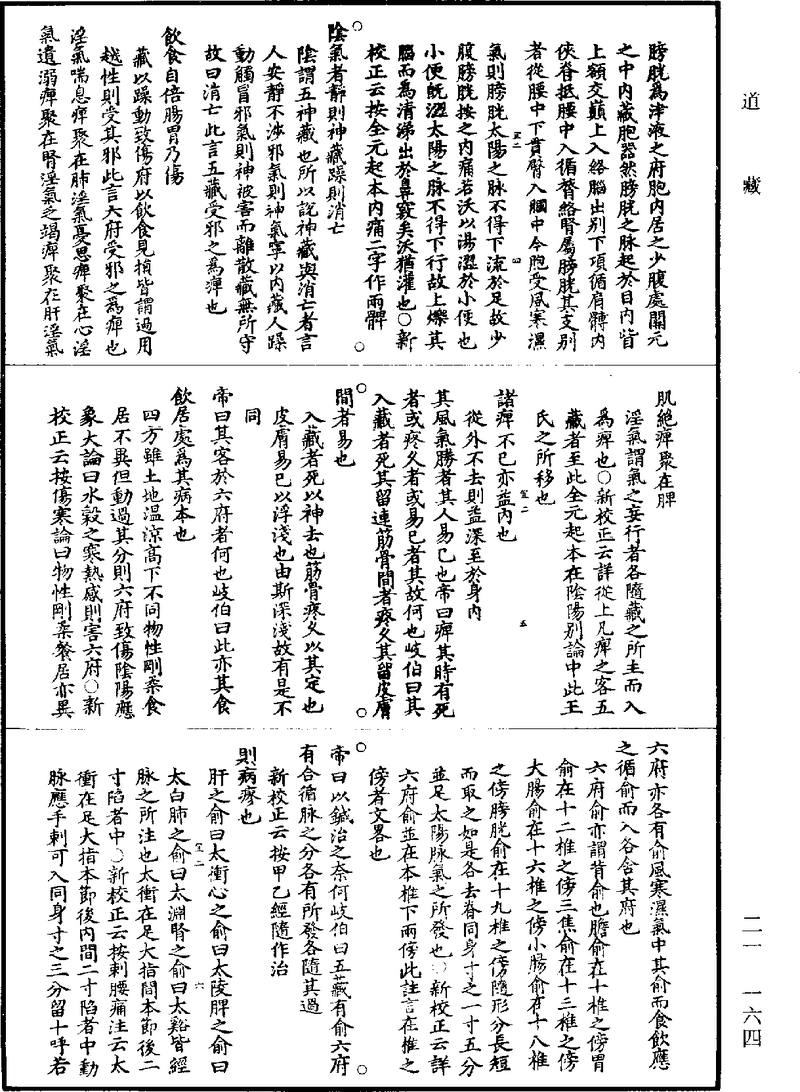 膀胱為津液之府胞内居之少腹處關元
之中内藏胞器然膀胱之脉起於目内眥
上額交巔上入絡腦出别下項循肩髆内
俠脊抵腰中入循膂絡腎屬膀胱其支别
者從腰中下貫臀入膕中今胞受風寒濕
氣則膀胱太陽之脉不得下流於足故少
腹膀胱按之内痛若沃以湯澀於小便也
小便既澀太陽之脉不得下行故上爍其
腦而為清涕出於鼻竅矣沃猶灌也○新
校正云按全元起本内痛二字作兩髀
陰氣者靜則神藏躁則消亡
陰謂五神藏也所以說神藏與消亡者言
人安靜不涉邪氣則神氣寧以内藏人躁
動觸冒邪氣則神被害而離散藏無所守
故曰消亡此言五藏受邪之為痺也
飲食自倍腸胃乃傷
藏以躁動致傷府以飲食見損皆謂過用
越性則受其邪此言六府受邪之為痺也
淫氣喘息痺聚在肺淫氣憂思痺聚在心淫
氣遺溺痺聚在腎淫氣乏竭痺聚在肝淫氣
肌絶痺聚在脾
淫氣謂氣之妄行者各隨藏之所主而入
為痺也○新校正云詳從上凡痺之客五
藏者至此全元起本在陰陽别論中此王
氏之所移也
諸痺不已亦益内也
從外不去則益深至於身内
其風氣勝者其人易已也帝曰痺其時有死
者或疼久者或易已者其故何也岐伯曰其
入藏者死其留連筋骨間者疼久其留皮膚
間者易也
入藏者死以神去也筋骨疼久以其定也
皮膚易已以浮淺也由斯深淺故有是不
同
帝曰其客於六府者何也岐伯曰此亦其食
飲居處為其病本也
四方雖土地溫涼高下不同物性剛柔食
居不異但動過其分則六府致傷陰陽應
象大論曰水穀之寒熱感則害六府○新
校正云按傷寒論曰物性剛柔餐居亦異
六府亦各有俞風寒濕氣中其俞而食飲應
之循俞而入各舍其府也
六府俞亦謂背俞也膽俞在十椎之傍胃
俞在十二椎之傍三焦俞在十三椎之傍
大腸俞在十六椎之傍小腸俞在十八椎
之傍膀胱俞在十九椎之傍隨形分長短
而取之如是各去脊同身寸之一寸五分
並足太陽脉氣之所發也○新校正云詳
六府俞並在本椎下兩傍此註言在椎之
傍者文畧也
帝曰以鍼治之奈何岐伯曰五藏有俞六府
有合循脉之分各有所發各隨其過
新校正云按甲乙經隨作治
則病瘳也
肝之俞曰太衝心之俞曰太陵脾之俞曰
太白肺之俞曰太淵腎之俞曰太谿皆經
脉之所注也太衝在足大指間本節後二
寸陷者中○新校正云按刺腰痛注云太
衝在足大指本節後内間二寸陷者中動
脉應手刺可入同身寸之三分留十呼若
道藏
二一 一六四